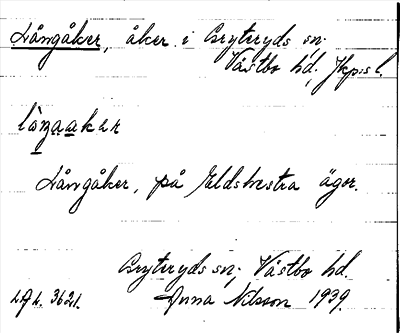 Långåker, åker i Bryteryds sn.
Västbo hd. Jkp:s l.
làŋaakər
Långåker, på Eldshestra ägor.
Bryteryds sn; Västbo hd.
L.A h. 3621. Anna Nilsson 1939.